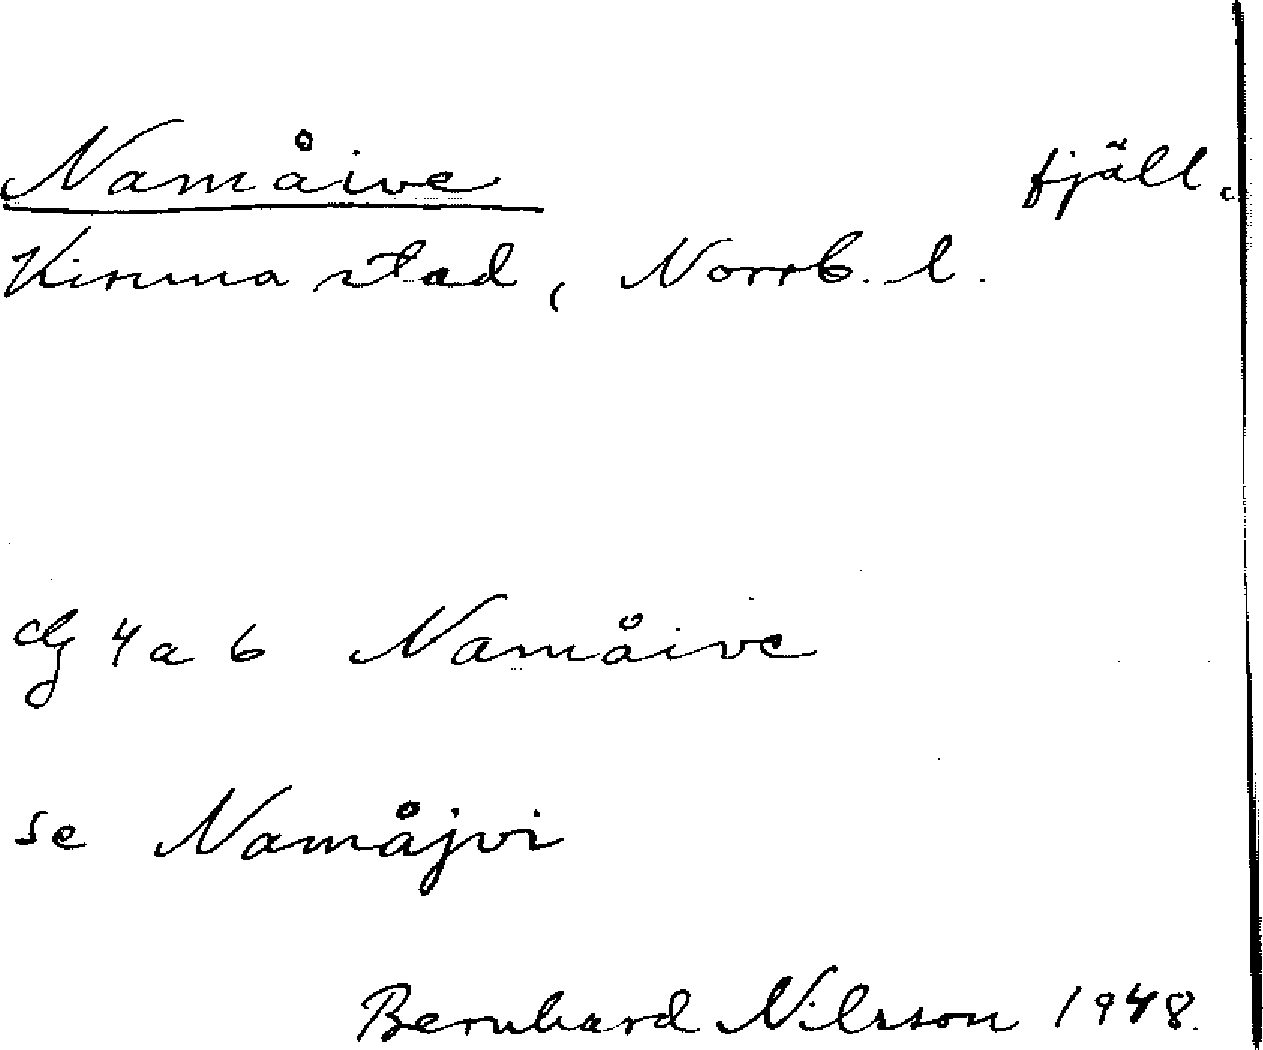 Namåive fjäll.
Kiruna stad, Norrb. l.
dg 4 a 6 Namåive
se Namåjvi
Bernhard Nilsson 1948.